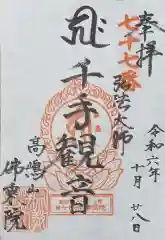 奉拝
七十七番
弘法大師
千手觀音
高嶋山
佛乗院
令和六年
十月廿八日